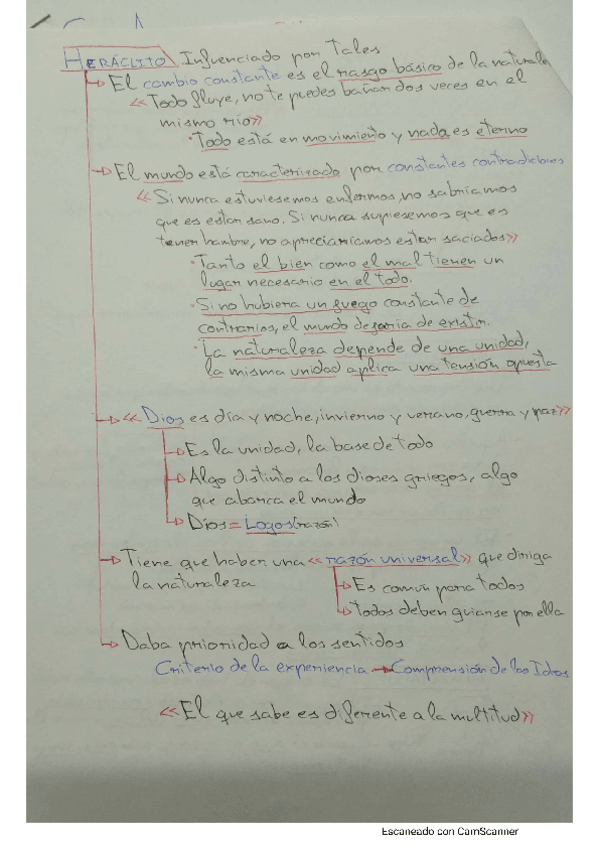 HERÁCLITO Influenciado por Tales
El cambio constante es el rasgo básico de la naturaleza
«Todo fluye, no te puedes bañar dos veces en el
mismo río»
· Todo está en movimiento y nada es eterno
El mundo está caracterizado por constantes contradicciones
«Si nunca estuviesemos enfermos, no sabríamos
que es estar sano. Si nunca supiesemos que es
tener hambre, no apreciaríamos estar saciados»
· Tanto el bien como el mal tienen un
lugar necesario en el todo.
· Si no hubiera un juego constante de
contrarios, el mundo dejaría de existir.
· La naturaleza depende de una unidad,
la misma unidad aplica una tensión opuesta
«Dios es día y noche, invierno y verano, guerra y paz»
Es la unidad, la base de todo
Algo distinto a los dioses griegos, algo
que abarca el mundo
Dios = Logos (razón)
Tiene que haber una «razón universal» que diriga
la naturaleza
Es común para todos
Todos deben guiarse por ella
Daba prioridad a los sentidos
Criterio de la experiencia → Comprensión de las Ideas
«El que sabe es diferente a la multitud»
Escaneado con CamScanner